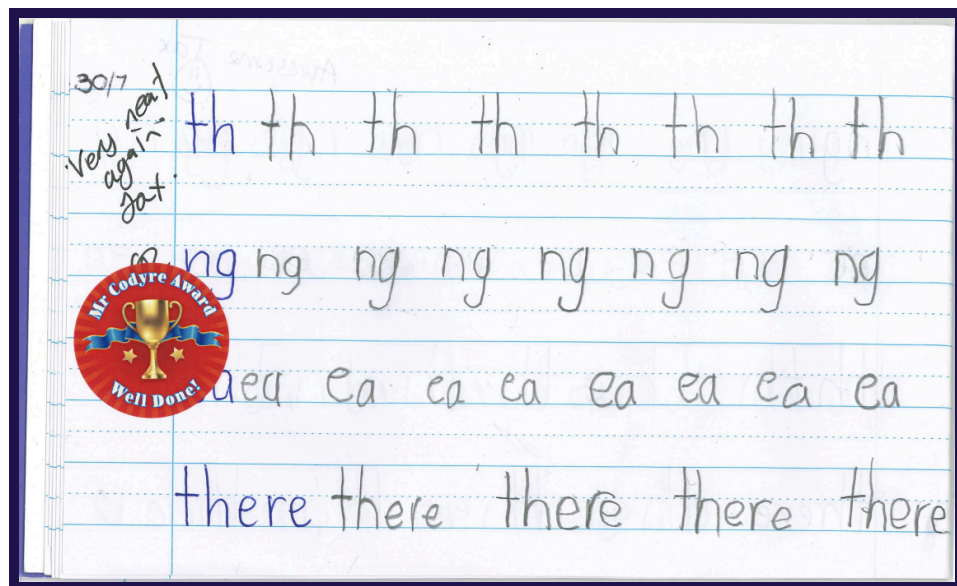 30/7
Very neat
again
Jax.
th th th th th th th th
ng ng ng ng ng ng ng ng
Mr Codyre Award
Well Done!
a ea ea ea ea ea ea ea
there there there there there